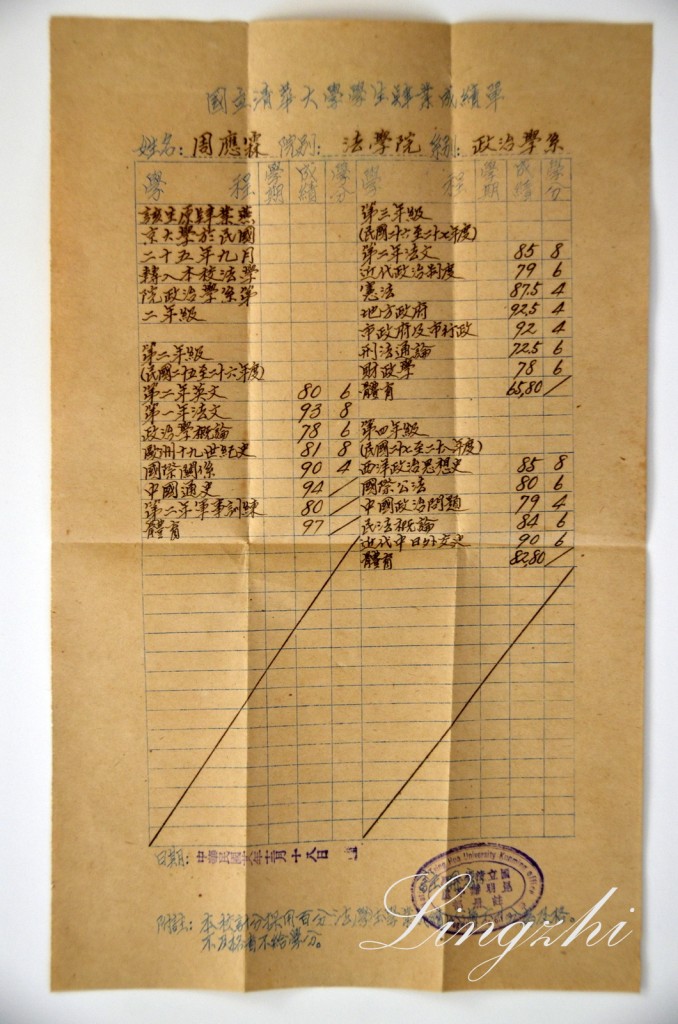 國立清華大學學生肄業成績單
姓名：周應霖 院别：法學院 系别：政治學系
學程 學期 成績 學分 學程 學期 成績 學分
該生原肄業燕
京大學於民國
二十五年九月
轉入本校法學
院政治學系第
二年級
第二年級
(民國二十五至二十六年度)
第二年英文 80 6
第一年法文 93 8
政治學概論 78 6
歐州十九世紀史 81 8
國際關係 90 4
中國通史 94 /
第二年軍事訓練 80 /
體育 97 /
第三年級
(民國二十六至二十七年度)
第二年法文 85 8
近代政治制度 79 6
憲法 87.5 4
地方政府 92.5 4
市政府及市行政 92 4
刑法通論 72.5 6
財政學 78 6
體育 65,80 /
第四年級
(民國二十七至二十八年度)
西洋政治思想史 85 8
國際公法 80 6
中國政治問題 79 4
民法概論 84 6
近代中日外交史 90 6
體育 82,80 /
日期：中華民國年月十八日
University Kunming Office
附註：本校計分採用百分法學生學業
不及格者不給學分。
Lingzhi